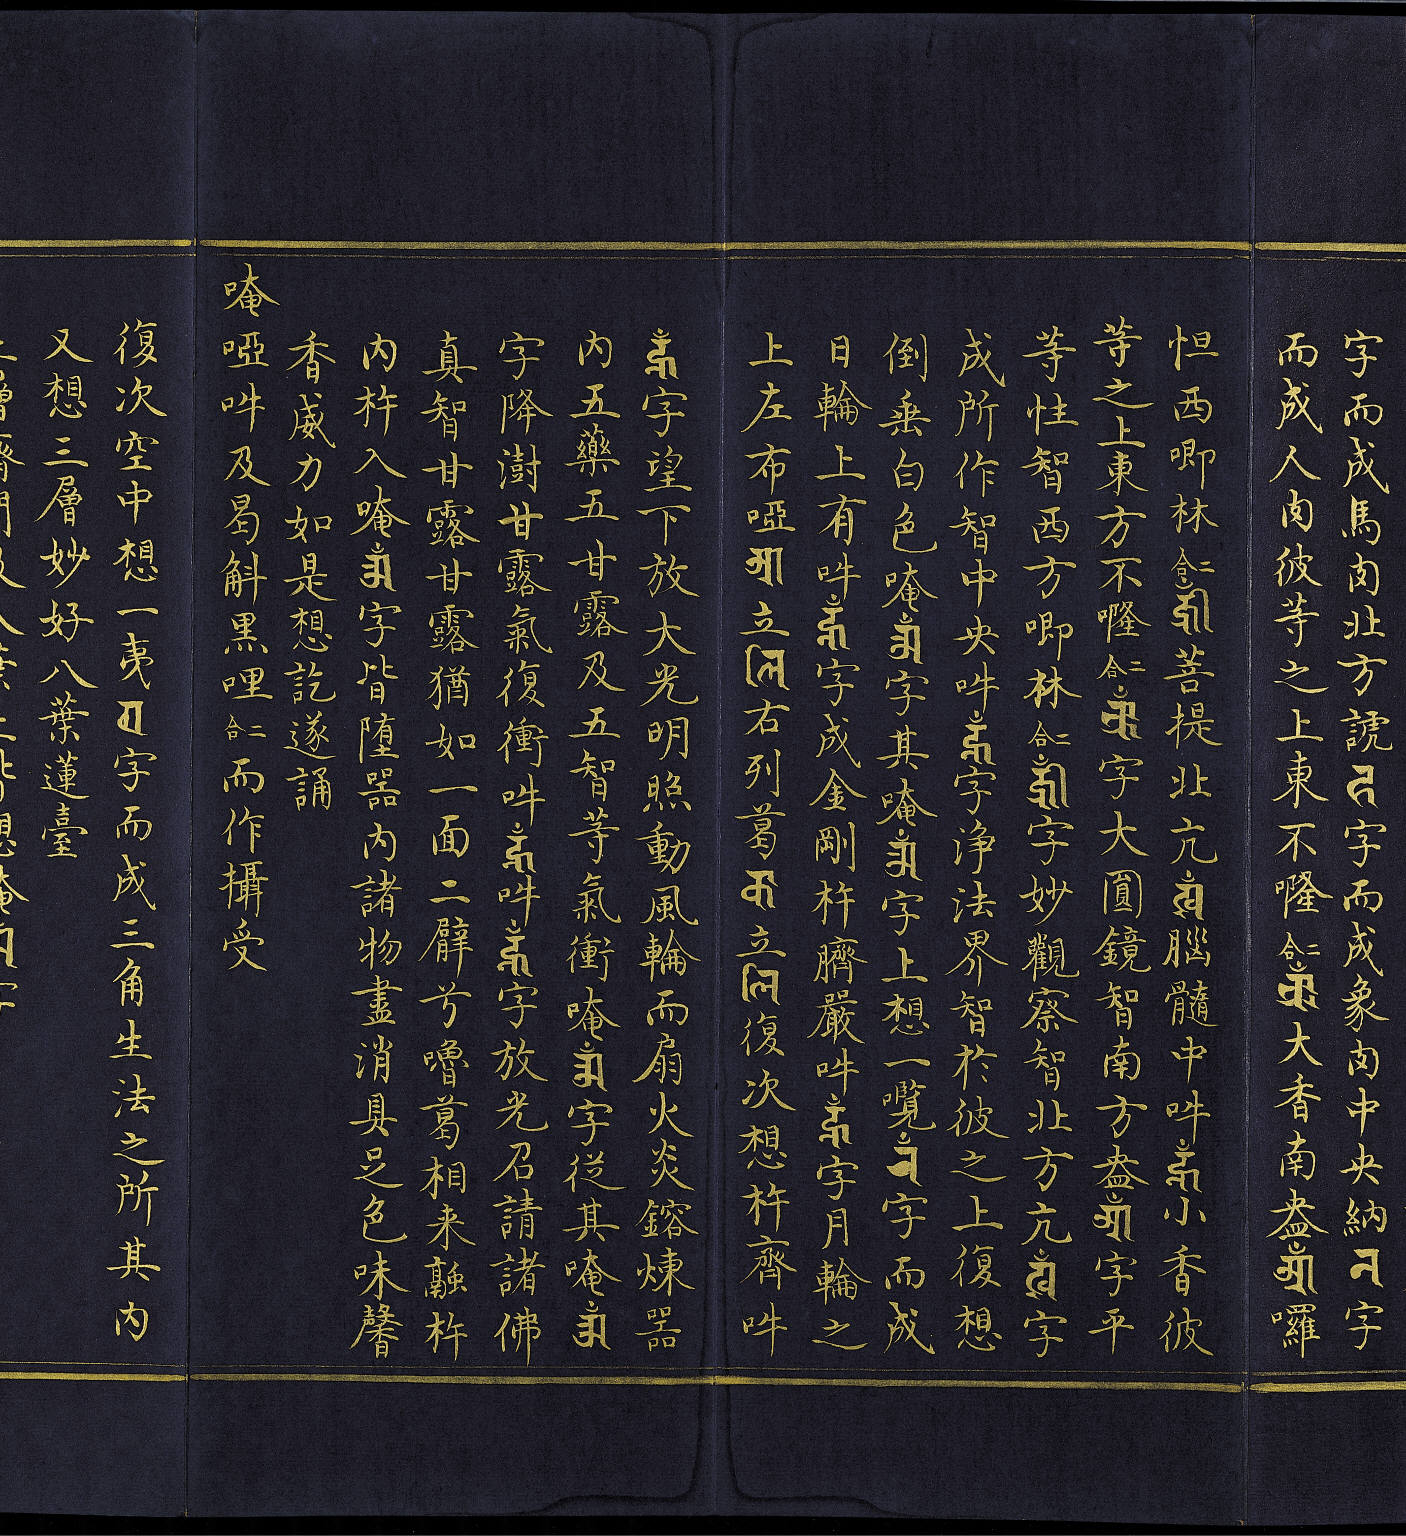 字而成馬肉北方謕字而成象肉中央納字
而成人肉彼等之上東不二合大香南盎囉
怛西唧林二合菩提北亢腦髓中吽小香彼
等之上東方不二合字大圓鏡智南方盎字平
等性智西方唧林二合字妙觀察智北方亢字
成所作智中央吽字淨法界智於彼之上復想
倒垂白色唵字其唵字上想一字而成
日輪上有吽字成金剛杵臍嚴吽字月輪之
上左布啞立右列葛立復次想杵齊吽
字望下放大光明照動風輪而扇火炎鎔煉器
内五藥五甘露及五智等氣衝唵字從其唵
字降澍甘露氣復衝吽吽字放光召請諸佛
真智甘露甘露猶如一面二臂兮嚕葛相来融杵
内杵入唵字皆墮器内諸物盡消具足色味馨
香威力如是想訖遂誦
唵啞吽及曷斛黑哩二合而作攝受
復次空中想一夷字而成三角生法之所其内
又想三層妙好八葉蓮臺